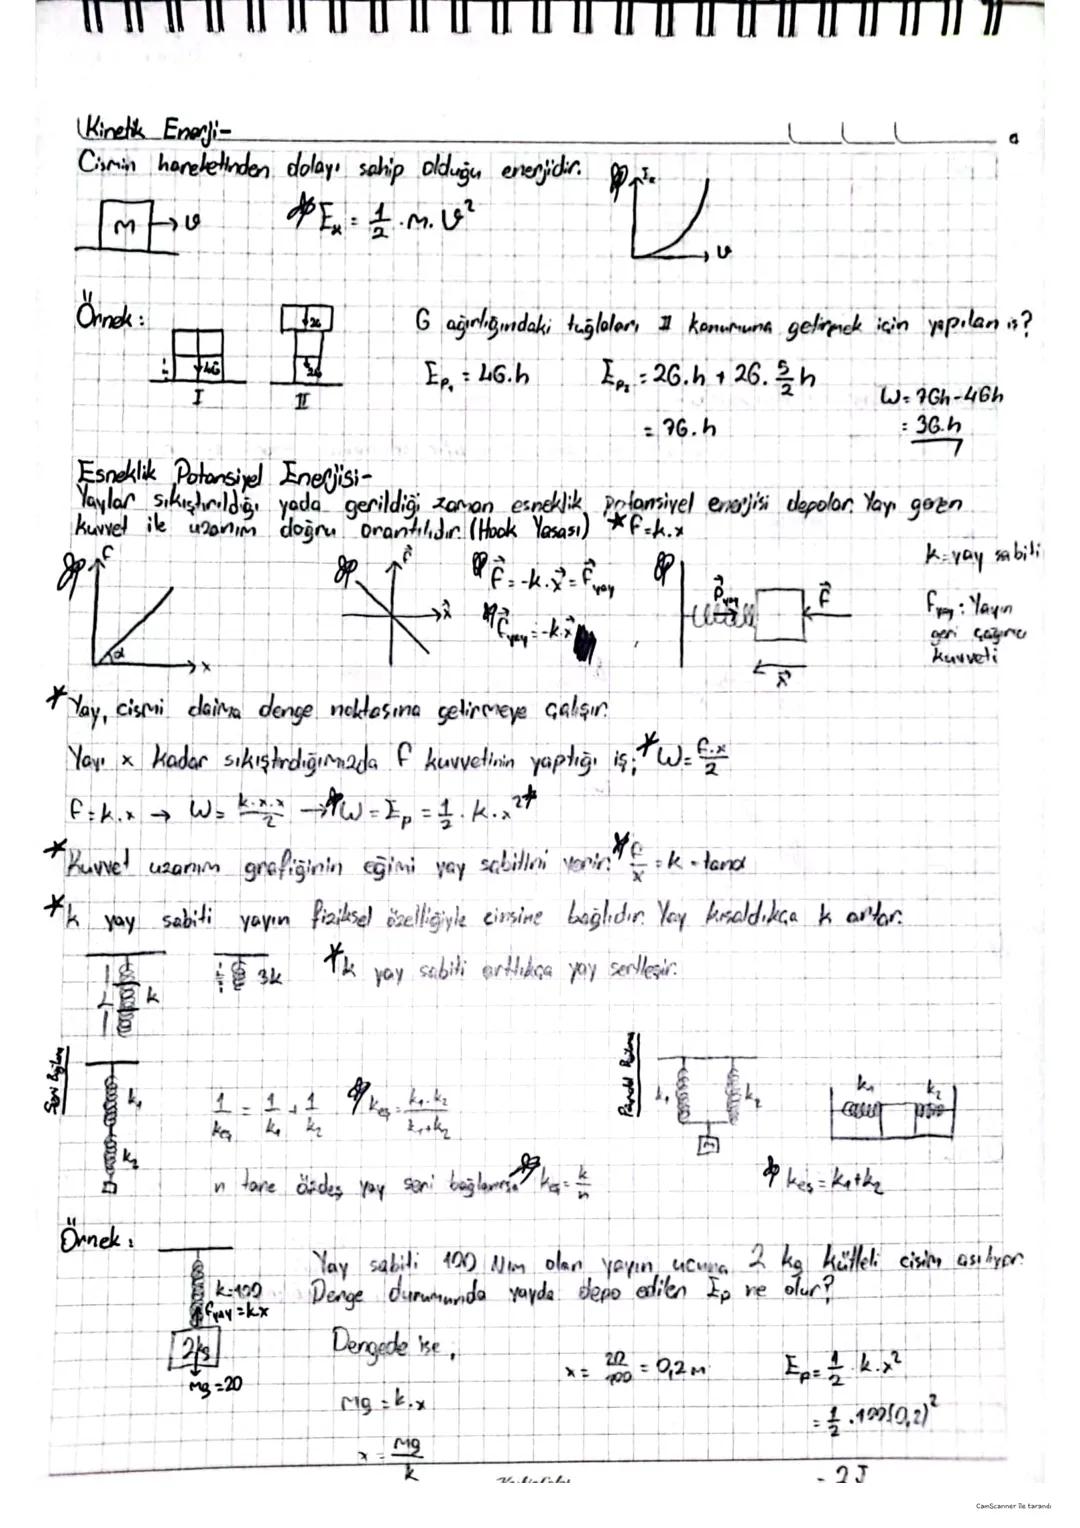 Kinetik Enerji-
Cismin hareketinden dolayı sahip olduğu enerjidir.
m → v
Eₖ = 1/2 . m. v²
Eₖ
v
Örnek:
4G
2G
2G
I
II
G ağırlığındaki tuğlaları II konumuna getirmek için yapılan iş?
Ep₁ = 4G.h
Ep₂ = 2G.h + 2G. 5/2 h
= 7G.h
W = 7Gh - 4Gh
= 3G.h
Esneklik Potansiyel Enerjisi-
Yaylar sıkıştırıldığı yada gerildiği zaman esneklik potansiyel enerjisi depolar. Yayı geren
kuvvet ile uzanım doğru orantılıdır. (Hook Yasası) *F=k.x
F
α
x
F
x
F = -k.x = Fyay
Fyay = -k.x
Fyay
F
x
k=yay sabiti
Fyay: Yayın
geri çağırıcı
kuvveti
* Yay, cismi daima denge noktasına getirmeye çalışır.
Yayı x kadar sıkıştırdığımızda F kuvvetinin yaptığı iş; * W = F.x/2
F = k.x → W = k.x.x/2 → W = Ep = 1/2 . k . x² *
* Kuvvet uzanım grafiğinin eğimi yay sabitini verir. F/x = k = tanα
* k yay sabiti yayın fiziksel özelliğiyle cinsine bağlıdır. Yay kısaldıkça k artar.
L
k
3k
* k yay sabiti arttıkça yay sertleşir.
Seri Bağlama
k₁
k₂
1/keş = 1/k₁ + 1/k₂
keş = k₁.k₂/k₁+k₂
n tane özdeş yay seri bağlanırsa keş = k/n
Paralel Bağlama
k₁
k₂
m
k₁
k₂
keş = k₁+k₂
Örnek:
k=100
Fyay = k.x
2kg
mg = 20
Yay sabiti 100 N/m olan yayın ucuna 2 kg kütleli cisim asılıyor.
Denge durumunda yayda depo edilen Ep ne olur?
Dengede ise,
mg = k.x
x = mg/k
x = 20/100 = 0,2 m
Ep = 1/2 . k . x²
= 1/2 . 100(0,2)²
= 2J
CamScanner ile tarandı